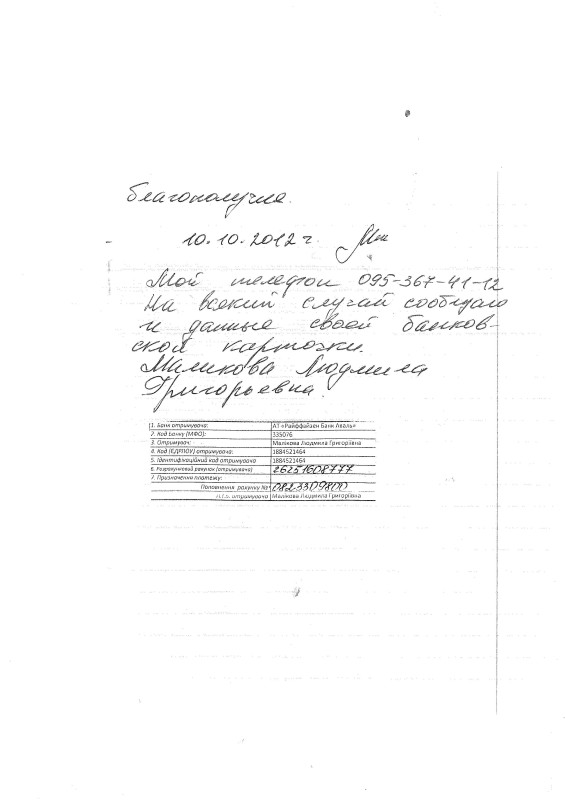 благополучия.
10.10.2012 г.
Мой телефон 095-367-41-12
На всякий случай сообщаю
и данные своей банков-
ской карточки.
Маликова Людмила
Григорьевна.
1. Банк отримувача: АТ «Райффайзен Банк Аваль»
2. Код Банку (МФО): 335076
3. Отримувач: Малікова Людмила Григорівна
4. Код (ЄДРПОУ) отримувача: 1884521464
5. Ідентифікаційний код отримувача 1884521464
6. Розрахунковий рахунок (отримувача) 26251608777
7. Призначення платежу:
Поповнення рахунку № 0823309800
п.і.п. отримувача Малікова Людмила Григорівна